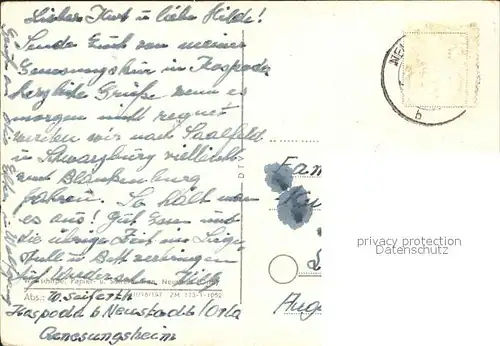 Lieber Kurt u liebe Hilde!
Sende Euch von meiner
Genesungskur in Kospoda
herzliche Grüße wenn es
morgen nicht regnet
werden wir nach Saalfeld
u Schwarzburg vielleicht
auch Blankenburg
fahren. So hält man
es aus! Gut Essen und
die übrige Zeit im Liege-
stuhl u Bett verbringen
Auf Wiedersehn
Abs.: W. Seiferth
Kospoda b Neustadt/Orla
Genesungsheim
Fam
Ku
Aug
privacy protection
Datenschutz
NEU
b